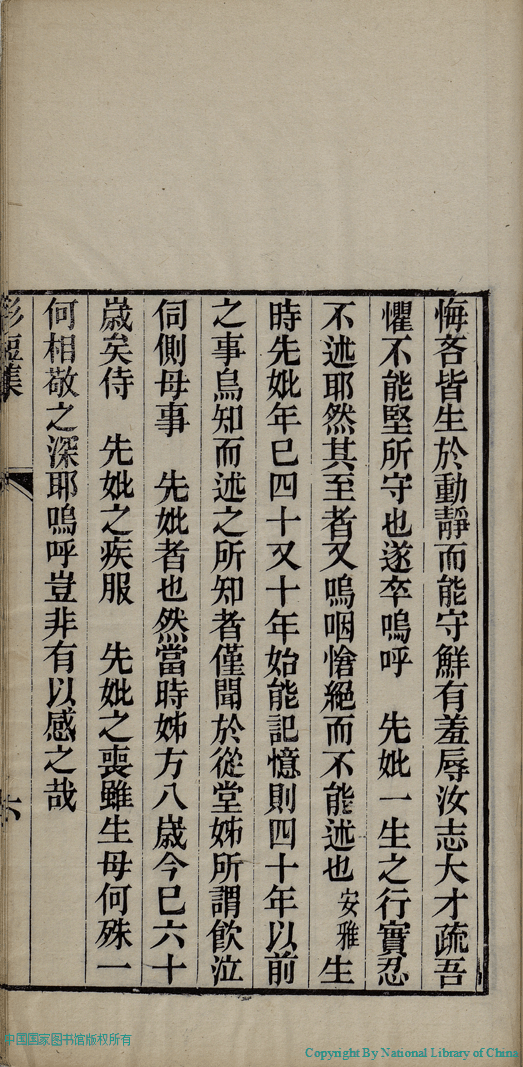 悔吝皆生於動靜而能守鮮有羞辱汝志大才疏吾
懼不能堅所守也遂卒嗚呼　先妣一生之行實忍
不述耶然其至者又嗚咽愴絕而不能述也安雅生
時先妣年已四十又十年始能記憶則四十年以前
之事烏知而述之所知者僅聞於從堂姊所謂飮泣
伺側母事　先妣者也然當時姊方八歲今已六十
歲矣侍　先妣之疾服　先妣之喪雖生母何殊一
何相敬之深耶嗚呼豈非有以感之哉
短集
六
中国国家图书馆版权所有
Copyright By National Library of China